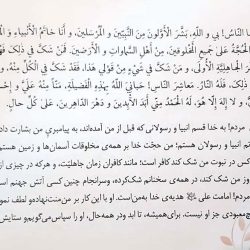 النَّاسُ! بِي وَ اللّٰهِ، بَشَّرَ الْأَوَّلُونَ مِنَ النَّبِيِّينَ وَ الْمُرْسَلِينَ، وَ أَنَا خَاتَمُ الْأَنْبِيَاءِ وَ
الْحُجَّةُ عَلَى جَمِيعِ الْمَخْلُوقِينَ، مِنْ أَهْلِ السَّمَاوَاتِ وَ الْأَرَضِينَ. فَمَنْ شَكَّ فِي ذٰلِكَ
الْجَاهِلِيَّةِ الْأُولَى، وَ مَنْ شَكَّ فِي شَيْءٍ مِنْ قَوْلِي هٰذَا، فَقَدْ شَكَّ فِي الْكُلِّ مِنْهُ، وَ
النَّارُ. مَعَاشِرَ النَّاسِ! حَبَانِيَ اللّٰهُ بِهٰذِهِ الْفَضِيلَةِ، مَنّاً مِنْهُ عَلَيَّ وَ
وَ لَا إِلٰهَ إِلَّا هُوَ، لَهُ الْحَمْدُ مِنِّي أَبَدَ الْآبِدِينَ وَ دَهْرَ الدَّاهِرِينَ. عَلَى كُلِّ حَالٍ.
مردم! به خدا قسم انبیا و رسولانی که قبل از من آمده‌اند، به پیامبری من بشارت داد
انبیا و رسولان هستم؛ من حجّت خدا بر همه‌ی مخلوقات آسمان‌ها و زمین هستم
کس در نبوت من شک کند کافر است؛ مانند کافران زمان جاهلیّت، و هرکه در چیزی از
روز من شک کند، در همه‌ی سخنانم شک‌کرده، وسرانجام چنین کسی آتش جهنم است
مردم! امامت علی هدیه‌ی خدا به‌من‌است. او با این کار بر من‌منت‌نهاده‌و لطف نمو
معبودی جز او نیست. برای‌همیشه، تا ابد ودر همه‌حال، او را سپاس‌می‌گویم‌و ستایش